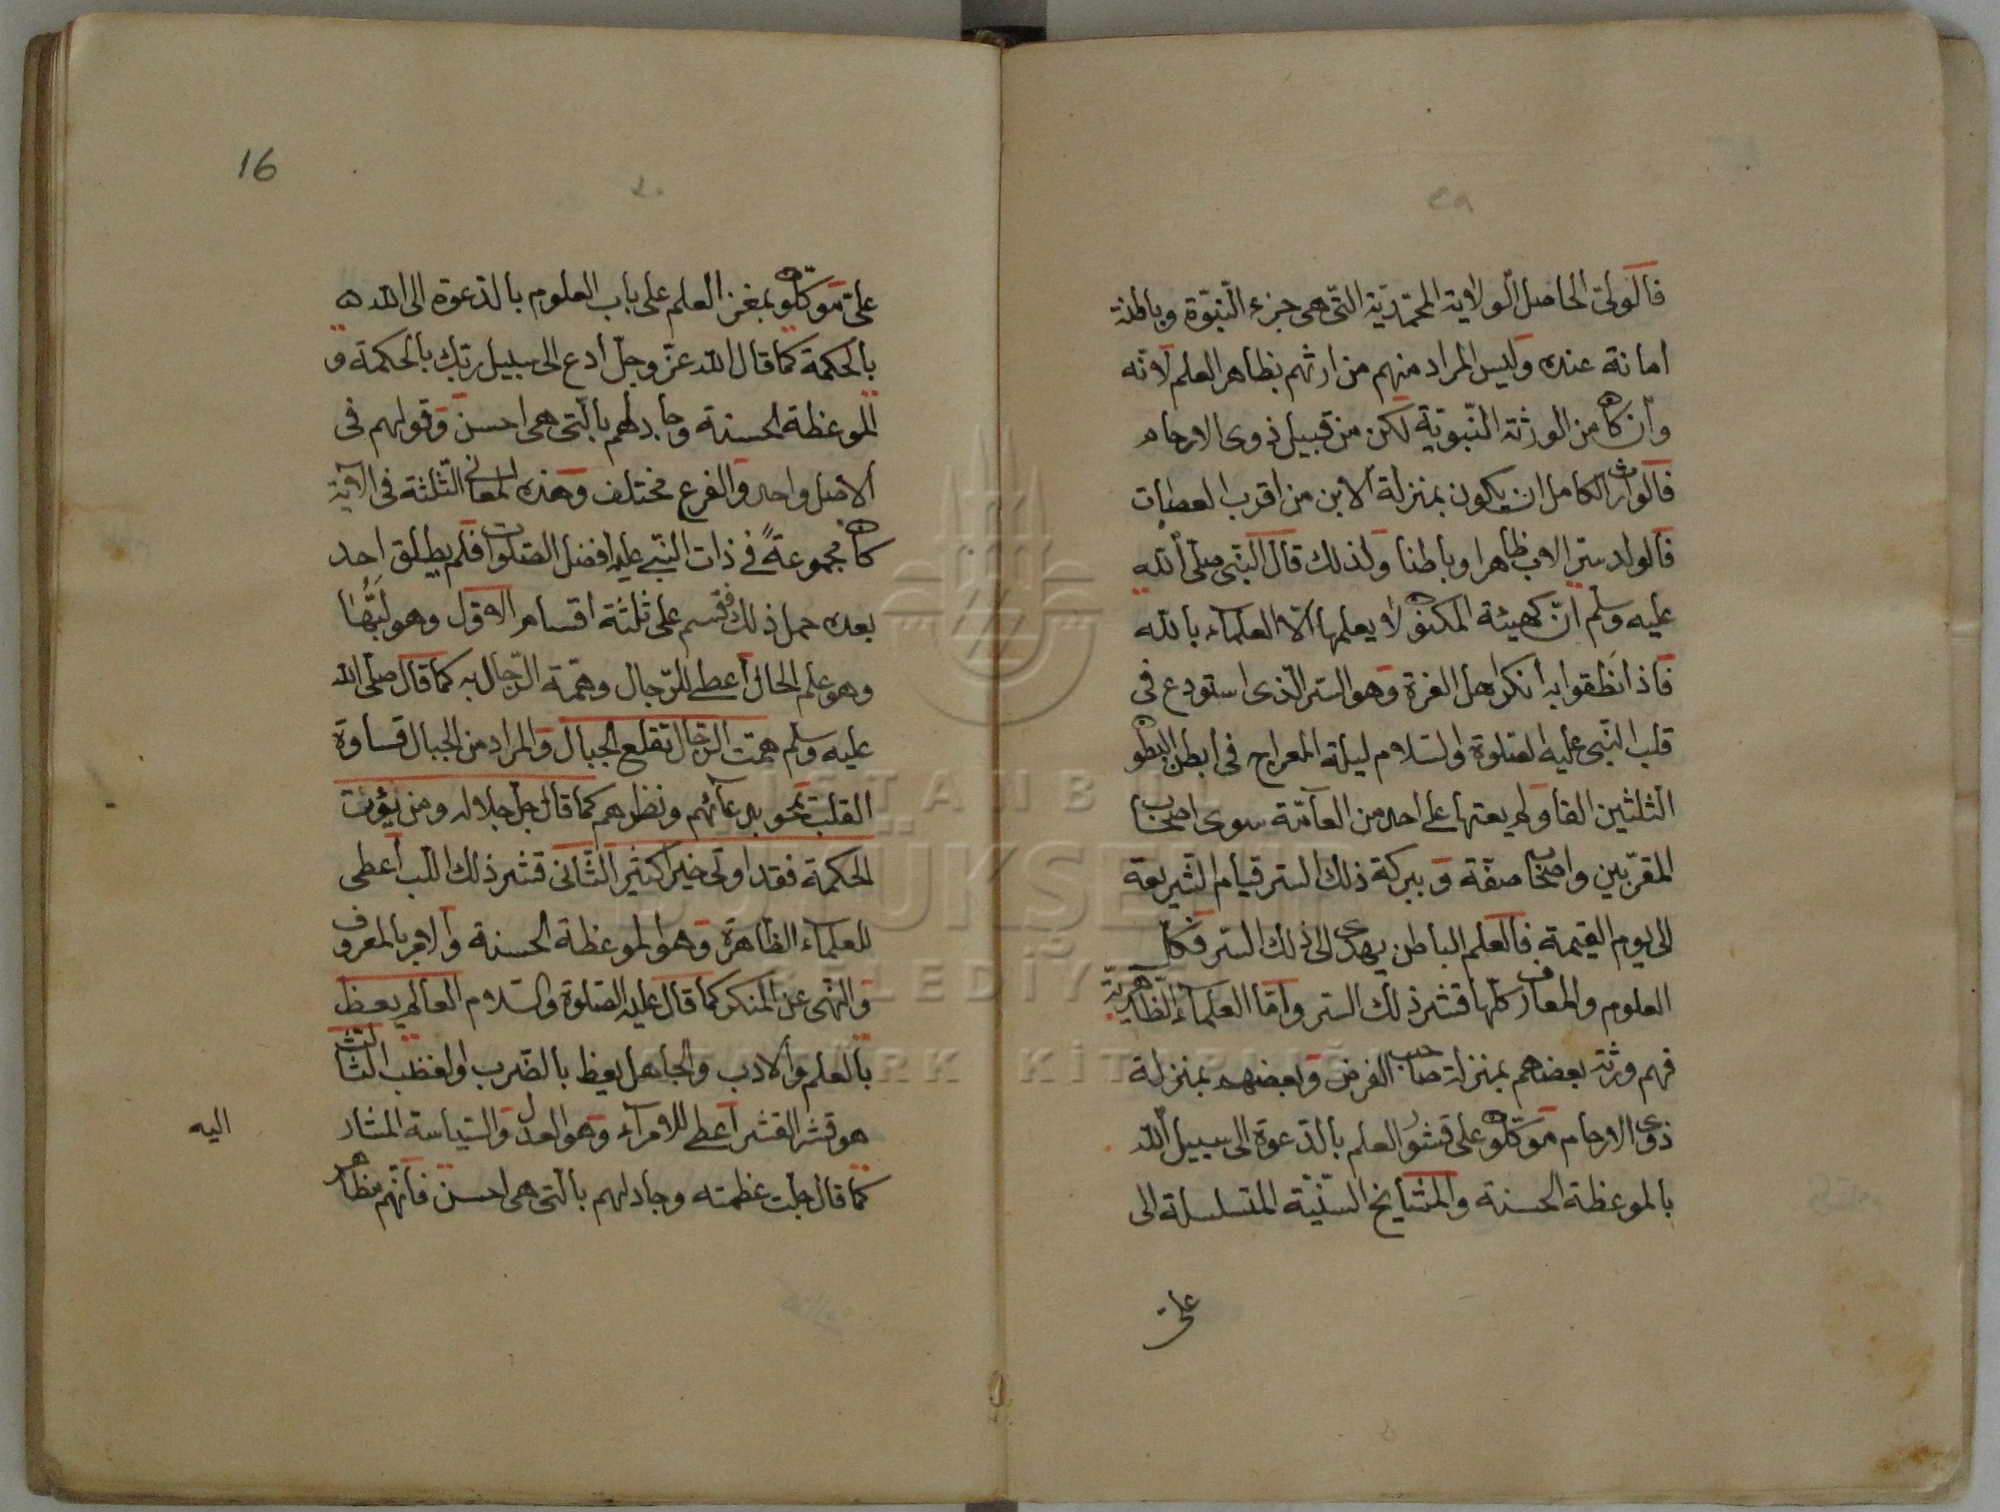 فالولىّ الحاصل الولاية المحمّديّة التى هى جزء النّبوّة وباطنه
امانة عنده وليس المراد منهم من ارثهم بظاهر العلم لانّه
وان كان من الورثة النّبويّة لكن من قبيل ذوى الارحام
فالوارث الكامل ان يكون بمنزلة الابن من اقرب العصبات
فالولد سرّ الاب ظاهرا وباطنا ولذلك قال النّبى صلّى اللّه
عليه وسلّم انّ كهيئة المكنون لا يعلمها الّا العلماء باللّه
فاذا نطقوا به انكره اهل الغرة وهو السّر الّذى استودع فى
قلب النّبى عليه الصّلوة والسّلام ليلة المعراج فى ابطن البطون
الثلثين الفا ولم يعتها على احد من العامّة سوى اصحاب
المقرّبين واصحاب صفّة وببركة ذلك السّر قيام الشّريعة
الى يوم القيمة فالعلم الباطن يهدى الى ذلك السّر فكلّ
العلوم والمعارف كلّها قشر ذلك السّر وامّا العلماء الظّاهريّة
فهم ورثة بعضهم بمنزلة صاحب الفرض وبعضهم بمنزلة
ذوى الارحام موكّلون على قشور العلم بالدّعوة الى سبيل اللّه
بالموعظة الحسنة والمشايخ السّنّيّة المتسلسلة الى
علىّ
16
علىّ موكّلون بمغز العلم على باب العلوم بالدّعوة الى اللّه
بالحكمة كما قال اللّه عزّ وجلّ ادع الى سبيل ربّك بالحكمة و
الموعظة الحسنة وجادلهم بالّتى هى احسن وقولهم فى
الاصل واحد والفرع مختلف وهذه المعانى الثّلثة فى الآية
كان مجموعةً فى ذات النّبى عليه افضل الصّلوات فلم يطلق احد
بعده حمل ذلك فقسم على ثلثة اقسام الاوّل وهو لبّها
وهو علم الحال اعطى للرّجال وهمّة الرّجال به كما قال صلّى اللّه
عليه وسلّم همّت الرّجال تقلع الجبال والمراد من الجبال قساوة
القلب تمحو بدعائهم ونظرهم كما قال جلّ جلاله ومن يؤت
الحكمة فقد اوتى خيرا كثيرا الثّانى قشر ذلك اللّب اعطى
للعلماء الظّاهرة وهو الموعظة الحسنة والامر بالمعروف
والنّهى عن المنكر كما قال عليه الصّلوة والسّلام العالم يعظ
بالعلم والادب والجاهل يعظ بالضّرب والغضب الثّالث
هو قشر القشر اعطى للامراء وهو العدل والسّياسة المشار
كما قال جلّت عظمته وجادلهم بالّتى هى احسن فانّهم مظاهر
اليه